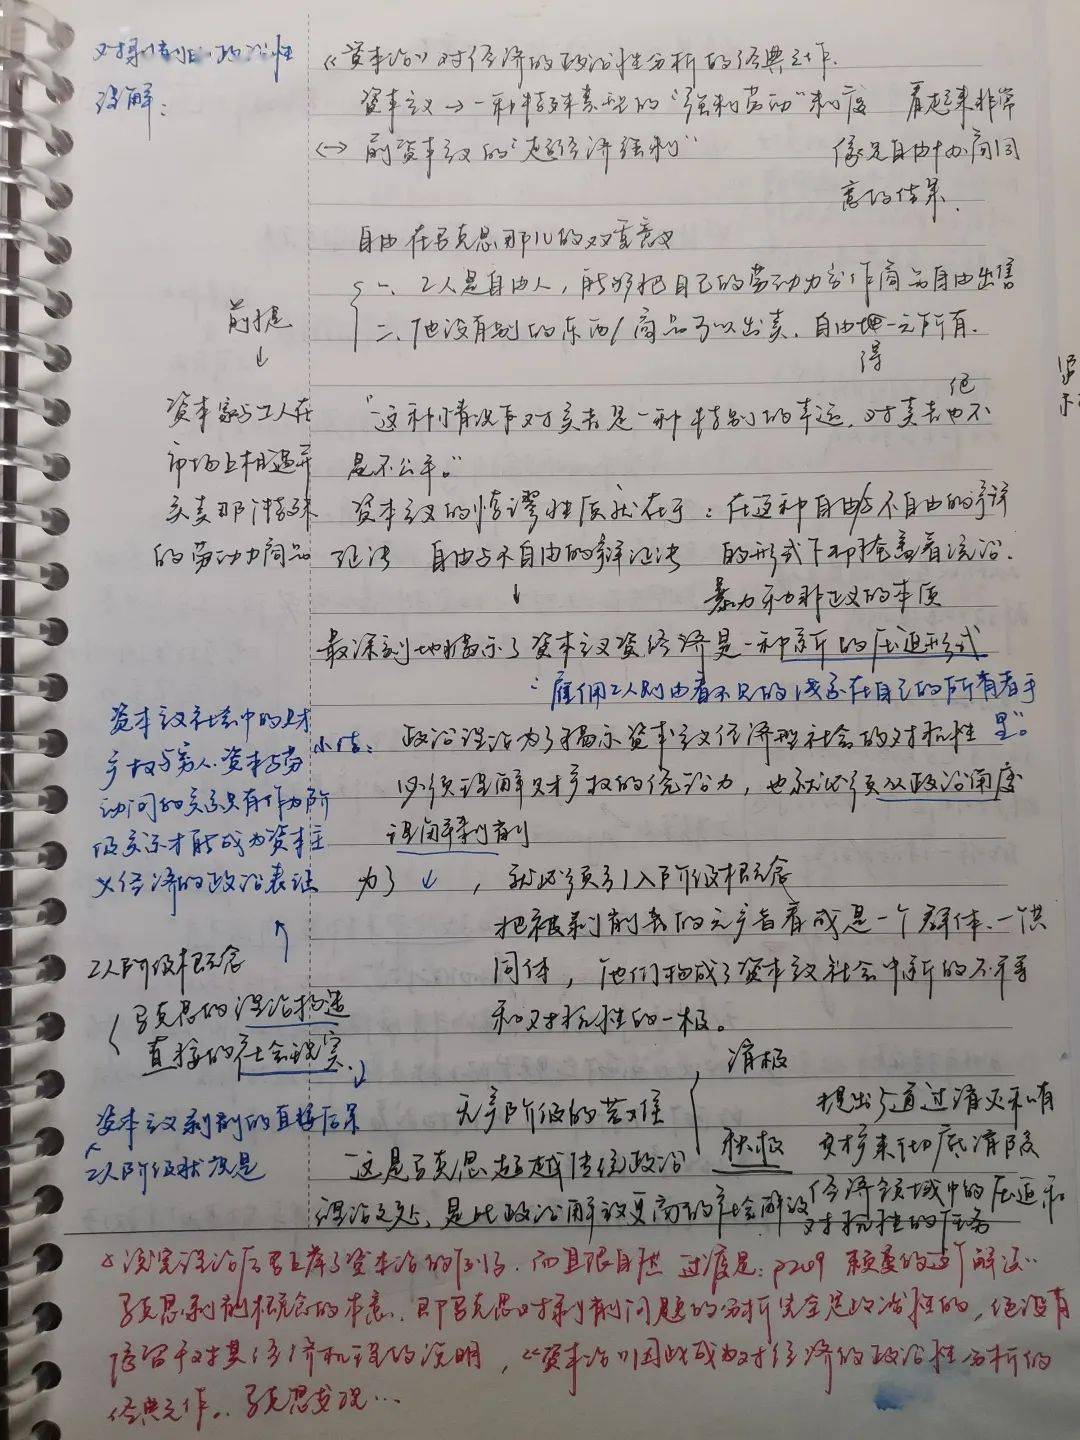 对剥削的政治性
误解：
《资本论》对经济的政治性分析的经典之作.
资本主义→一种特殊类型的"强制劳动"制度 看起来非常
像是自由协商同
意的结果.
↔ 前资本主义的"超经济强制"
自由在马克思那儿的双重意义
一、工人是自由人，能够把自己的劳动力当作商品自由出售
二、他没有别的东西/商品可以出卖. 自由得一无所有.
前提
↓
资本家与工人在
市场上相遇并
买卖那件特殊
的劳动力商品
"这种情况下对买者是一种特别的幸运，对卖者也不
是不公平。"
资本主义的悖谬性质就在于：在这种自由与不自由的辩
证法 自由与不自由的辩证法 的形式下却掩盖着统治.
暴力和非正义的本质
↓
最深刻地揭示了资本主义经济是一种新的压迫形式
"雇佣工人则由看不见的线系在自己的所有者手
里"。
资本主义社会中的财
产权与穷人、资本与劳
动间的关系只有作为阶
级关系才能成为资本主
义经济的政治表证
小结：政治理论为了揭示资本主义经济型社会的对抗性
必须理解财产权的统治力，也就必须从政治角度
理解剥削
为了↓，就必须引入阶级概念
把被剥削者的无产者看成是一个群体、一个共
同体，他们构成了资本主义社会中新的不平等
和对抗性的一极。
工人阶级概念
马克思的理论构造
直接的社会现实.
资本主义剥削的直接后果
工人阶级状况是
无产阶级的苦难
消极
积极
提出了通过消灭私有
财产来彻底消除
经济领域中的压迫和
对抗性的任务
这是马克思超越传统政治
理论之处，是比政治解放更高的社会解放
读完理论后马上举了资本论的例子. 而且很自然 过渡是：p209 颠覆的这个解读..
马克思剥削概念的本意. 即马克思对剥削问题的分析完全是政治性的，绝没有
停留于对其经济机理的说明，《资本论》因此成为对经济的政治性分析的
经典之作。马克思发现...